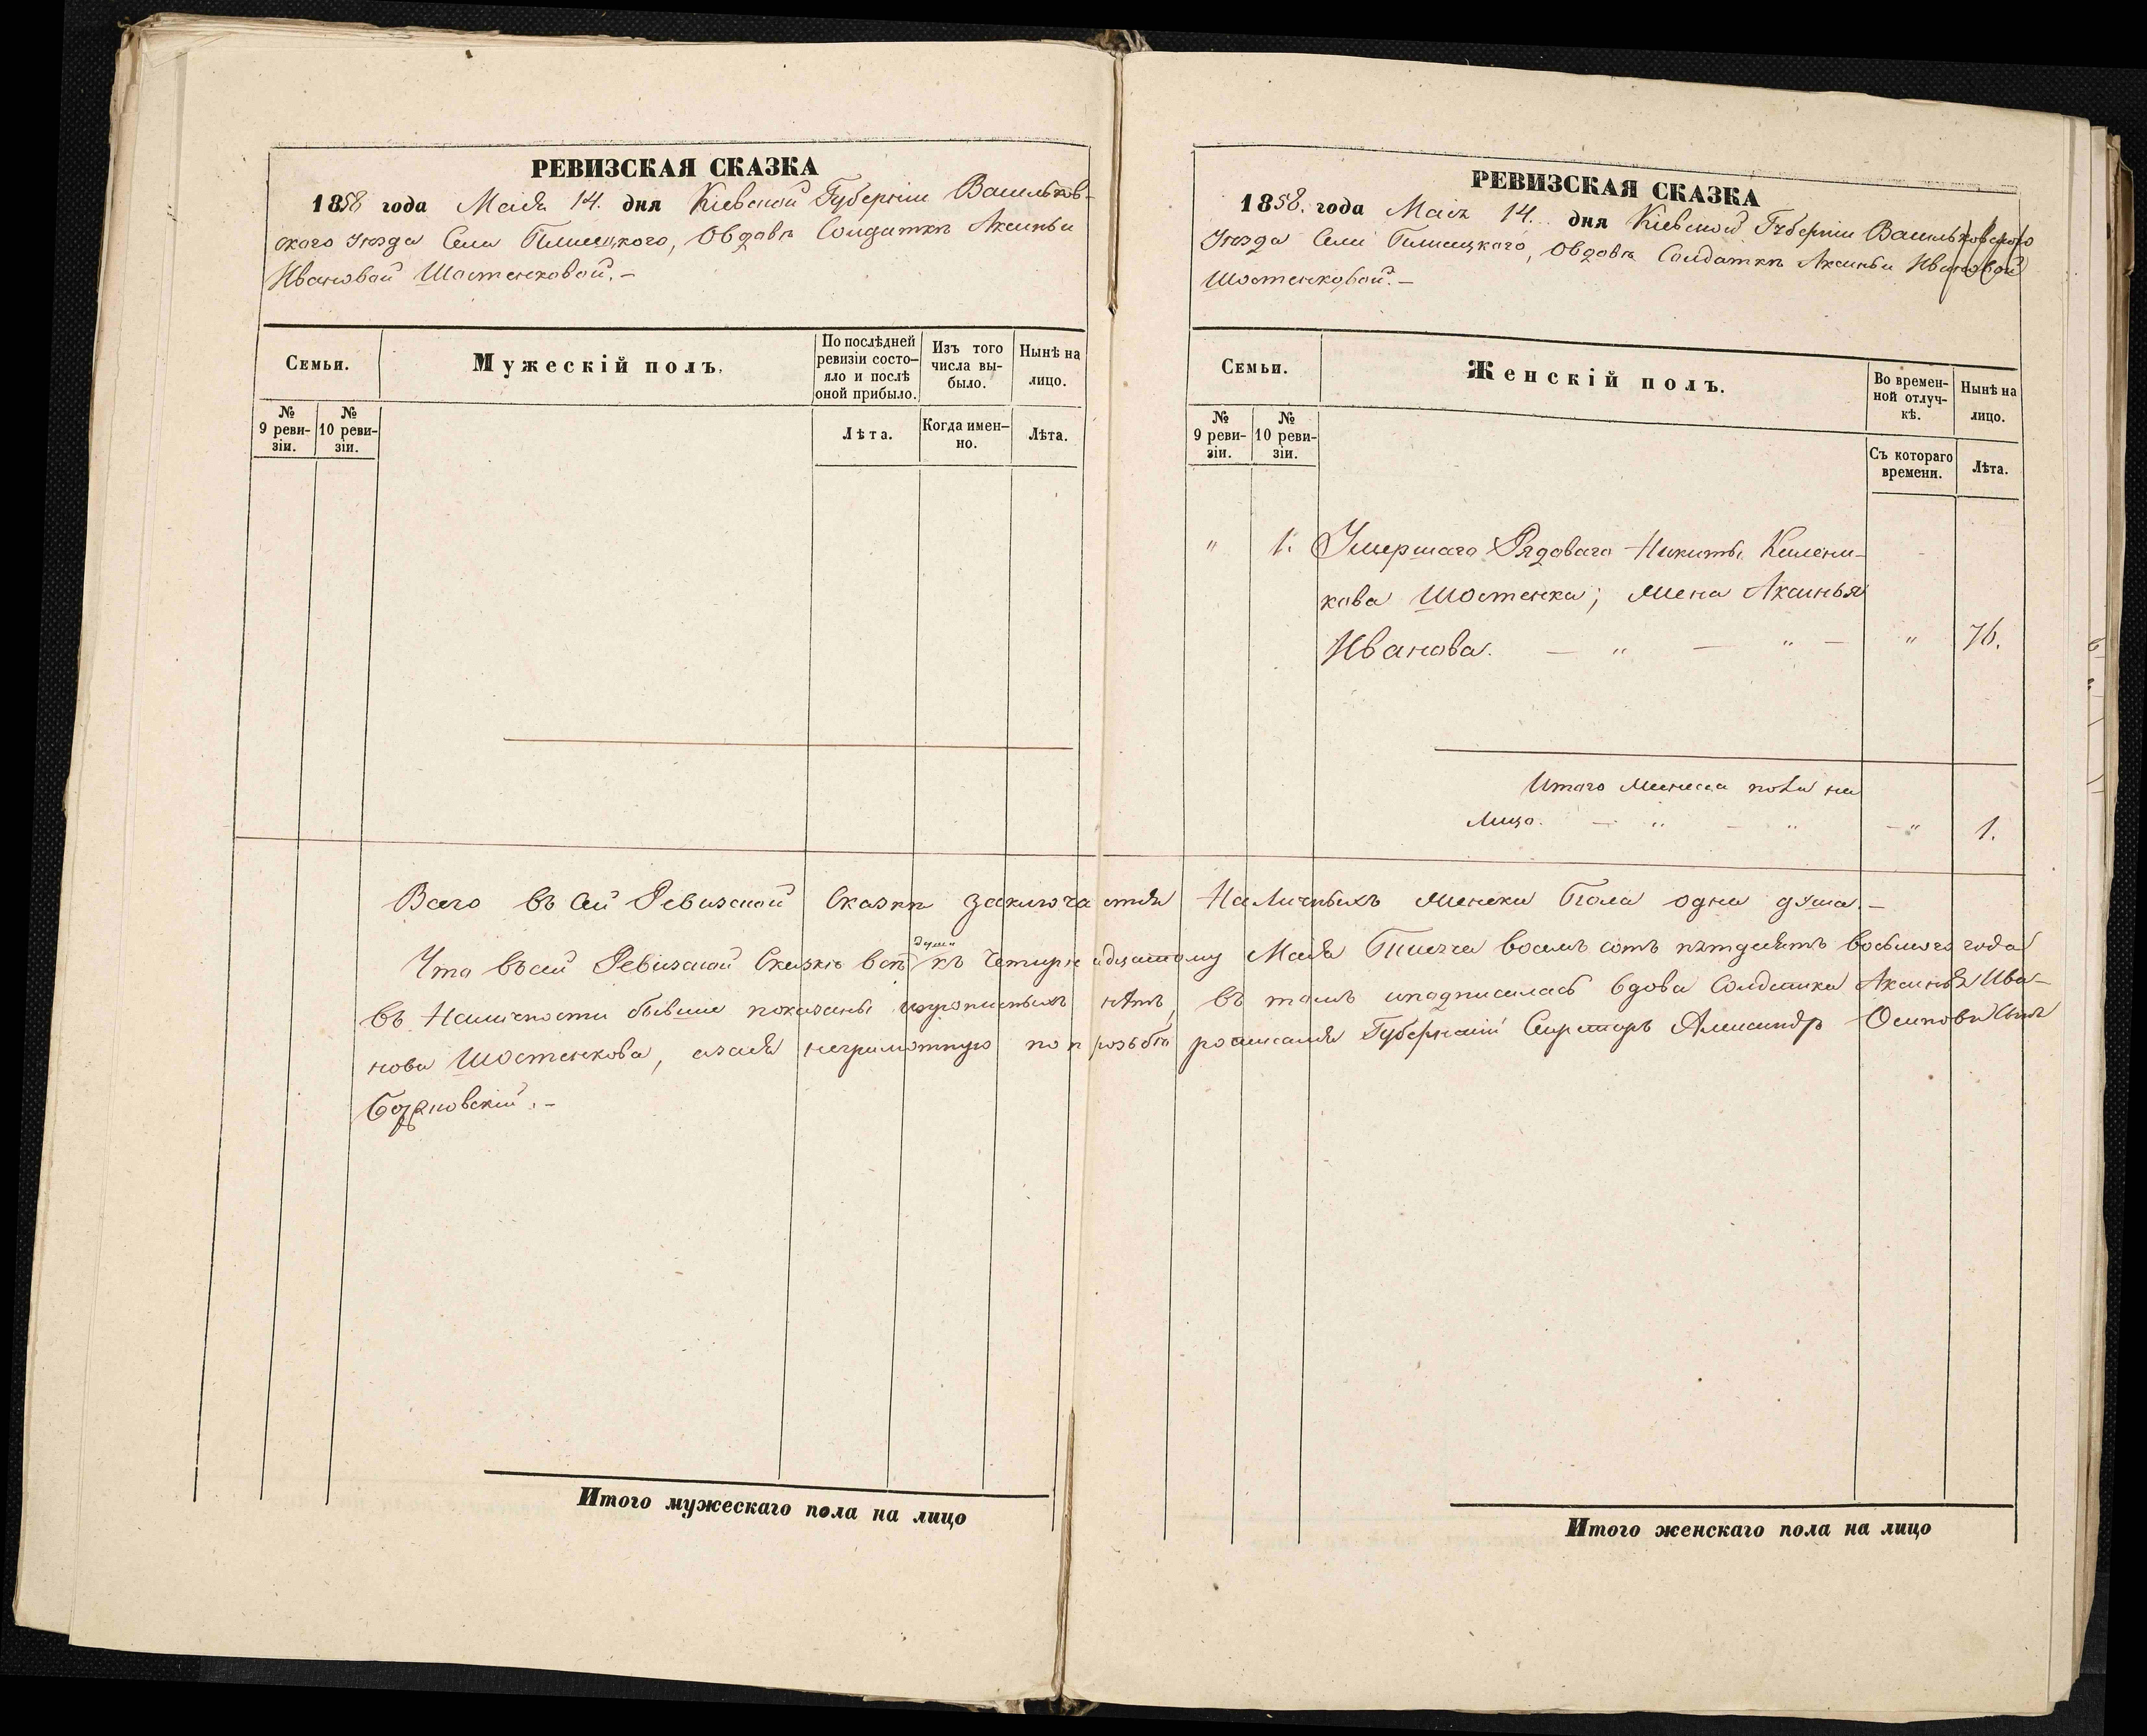 РЕВИЗСКАЯ СКАЗКА
1858 года Маія 14. дня Кіевской Губерніи Васильков-
ского Уезда Села, О вдовѣ Солдаткѣ Аксиньи
Ивановой Шостенковой. –
Семьи.
Мужескій полъ.
По послѣдней ревизіи состояло и послѣ оной прибыло.
Изъ того числа вы-было.
Нынѣ на лицо.
№ 9 реви-зіи.
№ 10 реви-зіи.
Лѣта.
Когда имен-но.
Лѣта.
Итого мужескаго пола на лицо
РЕВИЗСКАЯ СКАЗКА
1858. года Маія 14. дня Кіевской Губерніи Васильковского
Уезда Села, О вдовѣ Солдаткѣ Аксиньи Ивановой
Шостенковой. –
Семьи.
Женскій полъ.
Во времен-ной отлуч-кѣ.
Нынѣ на лицо.
№ 9 реви-зіи.
№ 10 реви-зіи.
Съ котораго времени.
Лѣта.
" 1. Умершаго Рядоваго Никиты
Шостенка; жена Аксинья
Иванова. – " – " – " 76.
Итого женска пола на
лицо. – " – " – " 1.
Всего въ сей Ревизской Сказкѣ заключается Наличныхъ женска Пола одна душа. –
души
Что въ сей Ревизской Сказкѣ всѣ къ Четырнадцатому Маія Тысяча восемъ сотъ пятдесятъ восьмого года
въ Наличности бывшие показаны и прописныхъ нѣтъ, въ томъ и подписалась вдова Солдатка Аксинья Ива-
нова Шостенкова, а за нея неграмотную по прозьбѣ росписался Губернскій Секретарь Александръ Осиповъ Сынъ
Итого женскаго пола на лицо